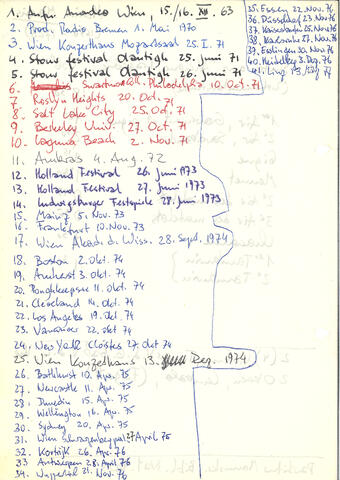 1. Aufn. Amadeo Wien, 15./16. XII. 63
2. Prod. Radio Bremen 1. Mai 1970
3. Wien Konzerthaus Mozartsaal 25. I. 71
4. Stour festival Olantigh 25. Juni 71
5. Stour festival Olantigh 26. Juni 71
6. Swarthmore Coll. Philadelphia 10. Oct. 71
7. Roslyn Heights 20. Oct. 71
8. Salt Lake City 25. Oct. 71
9. Berkeley Univ. 27. Oct. 71
10. Laguna Beach 2. Nov. 71
11. Ambras 4. Aug. 72
12. Holland Festival 26. Juni 1973
13. Holland Festival 27. Juni 1973
14. Ludwigsburger Festspiele 28. Juni 1973
15. Mainz 5. Nov. 73
16. Frankfurt 10. Nov. 73
17. Wien Akad. d. Wiss. 28. Sept. 1974
18. Boston 2. Okt. 74
19. Amherst 3. Okt. 74
20. Poughkeepsie 11. Okt. 74
21. Cleveland 14. Okt. 74
22. Los Angeles 19. Okt. 74
23. Vancouver 22. Okt. 74
24. New York Cloisters 27. Okt 74
25. Wien Konzerthaus 13. Dez. 1974
26. Bathurst 10. Apr. 75
27. Newcastle 11. Apr. 75
28. Dunedin 15. Apr. 75
29. Wellington 16. Apr. 75
30. Sydney 20. Apr. 75
31. Wien Schwarzenbergpal. 27. April 76
32. Kortrijk 26. Apr. 76
33 Antwerpen 28. April 76
34. Wuppertal 21. Nov. 76
35. Essen 22. Nov. 76
36. Düsseldorf 23. Nov 76
37. Kaiserslautern 25. Nov 76
38. Karlsruhe 27. Nov. 76
39. Esslingen 30. Nov 76
40. Heidelberg 3. Dez. 76
41. Linz